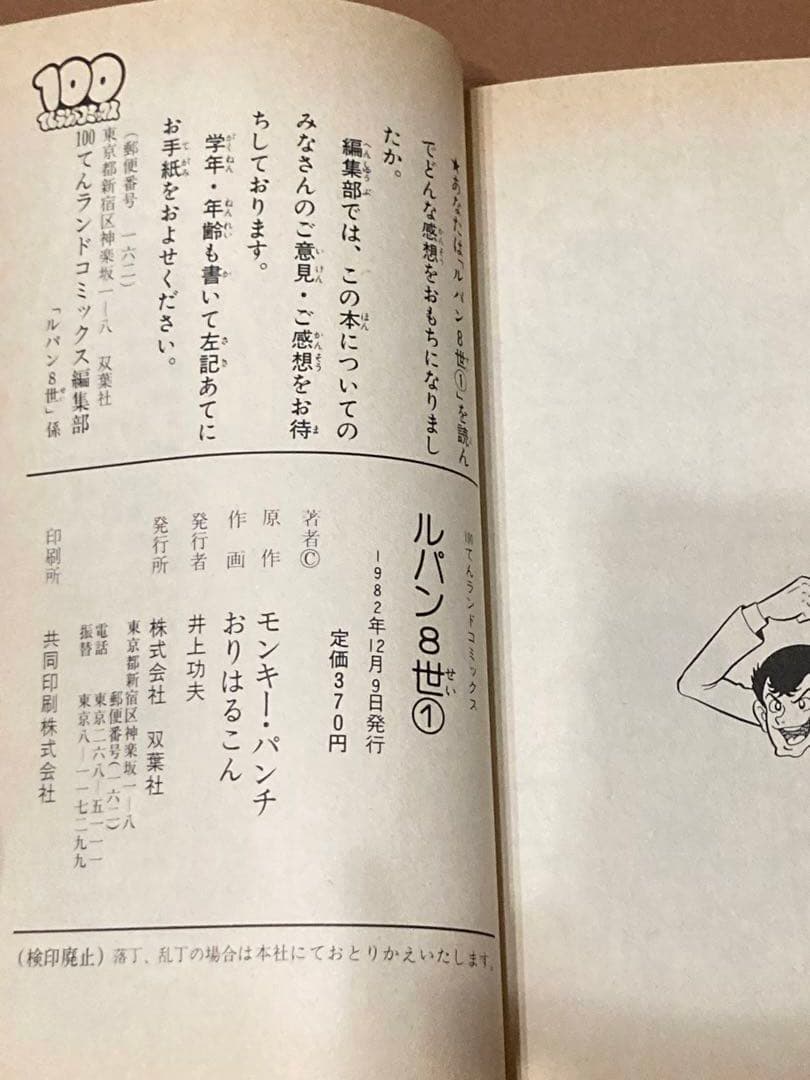 ★あなたは「ルパン8世①」を読ん
でどんな感想をおもちになりまし
たか。
編集部では、この本についての
みなさんのご意見・ご感想をお待
ちしております。
学年・年齢も書いて左記あてに
お手紙をおよせください。
(郵便番号 一六二)
東京都新宿区神楽坂一―八 双葉社
100てんランドコミックス編集部
「ルパン8世」係
100
てんランドコミックス
100てんランドコミックス
ルパン8世①
1982年12月9日発行
定価370円
著者©
原作 モンキー・パンチ
作画 おりはるこん
発行者 井上功夫
発行所 株式会社 双葉社
東京都新宿区神楽坂一―八
郵便番号(一六二)
電話 東京二六八―五一一一
振替 東京八―一一七二九九
印刷所 共同印刷株式会社
(検印廃止) 落丁、乱丁の場合は本社にておとりかえいたします。